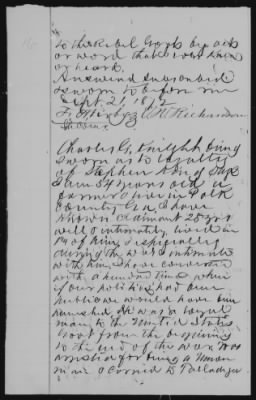 to the Rebel Govt by act
or word that I ever knew
or heard.
Answered subscribed
& sworn to before me
Sept. 21, 1872
W H Richardson
Charles G. Knight being
sworn as to loyalty
of Stephen says
I am 54 years old a
farmer & live in Polk
County Ga. I have
known claimant 25 yrs
well & intimately lived in
of him, & especially
during the war intimate
with him, have conversed
with a hundred times when
if our politics had been
public we would have been
punished. He was a loyal
man to the United States
Govt from the beginning
to the end of the war was
arrested for being a Union
man & carried to Talladega